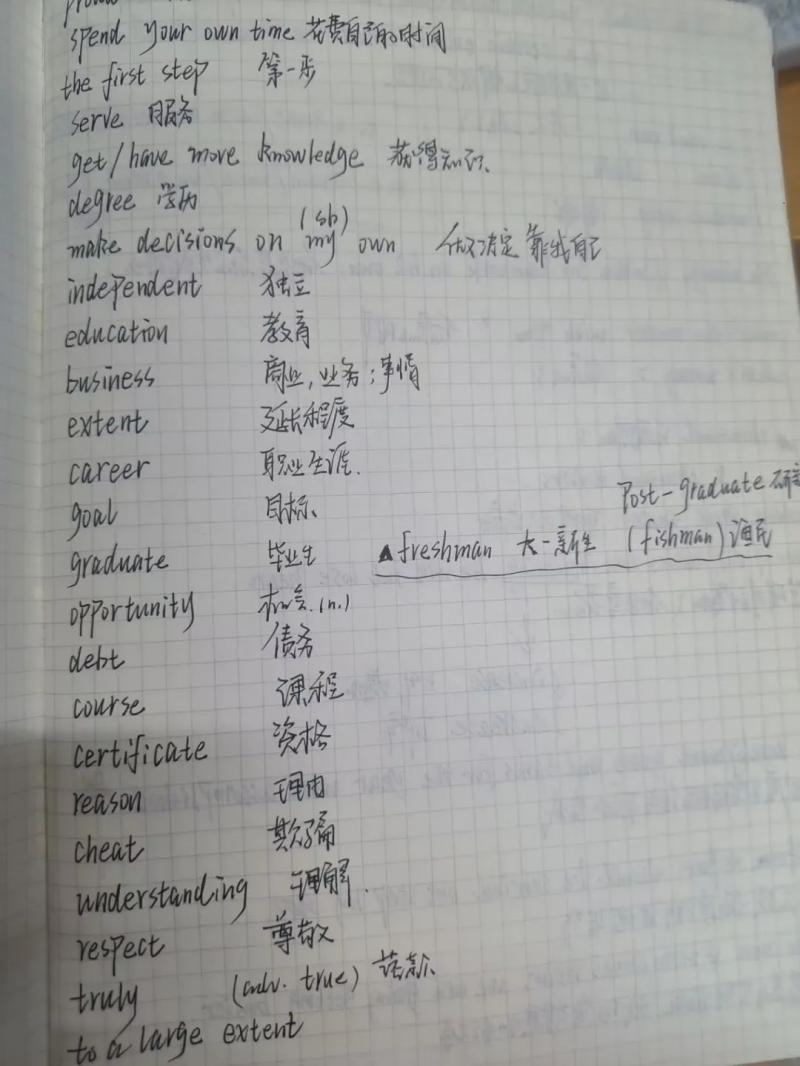 spend your own time 花费自己的时间
the first step 第一步
serve 服务
get/have more knowledge 获得知识
degree 学历
(sb)
make decisions on my own 做决定靠我自己
independent 独立
education 教育
business 商业,业务;事情
extent 延长程度
career 职业生涯.
Post-graduate 研
goal 目标
graduate 毕业生 ▲freshman 大一新生 (fishman) 渔民
opportunity 机会.(n.)
debt 债务
course 课程
certificate 资格
reason 理由
cheat 欺骗
understanding 理解.
respect 尊敬
truly (adv. true)
to a large extent